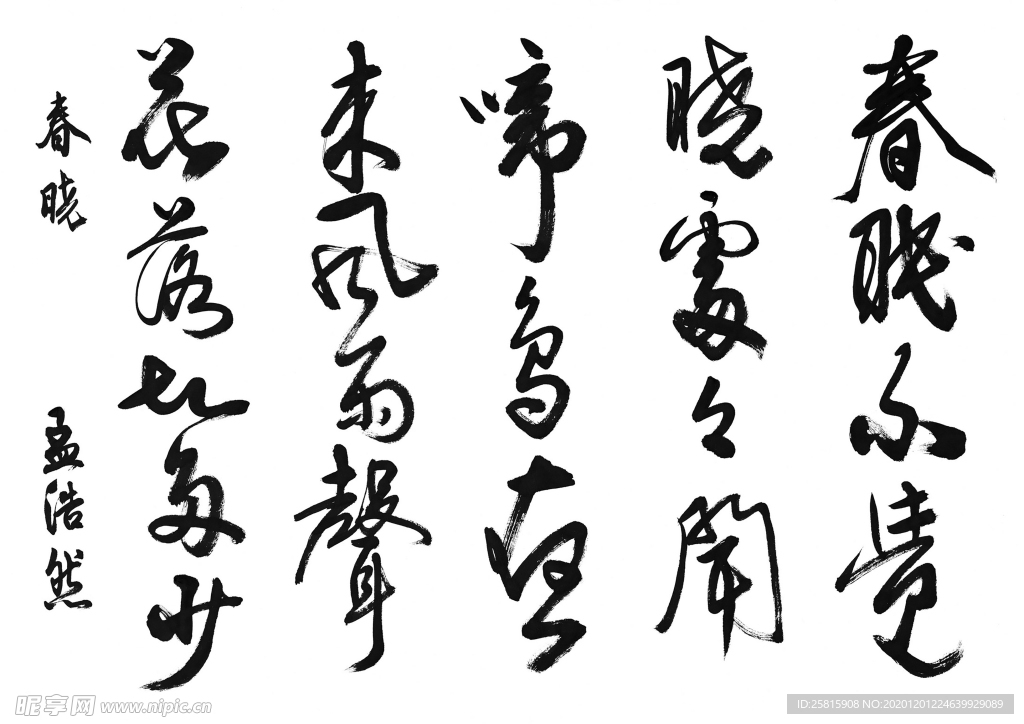 春眠不覺
晓處々聞
啼鸟夜
来風雨聲
花落知多少
春晓 孟浩然
昵享网 www.nipic.cn
ID:25815908 NO:20201201224639929089